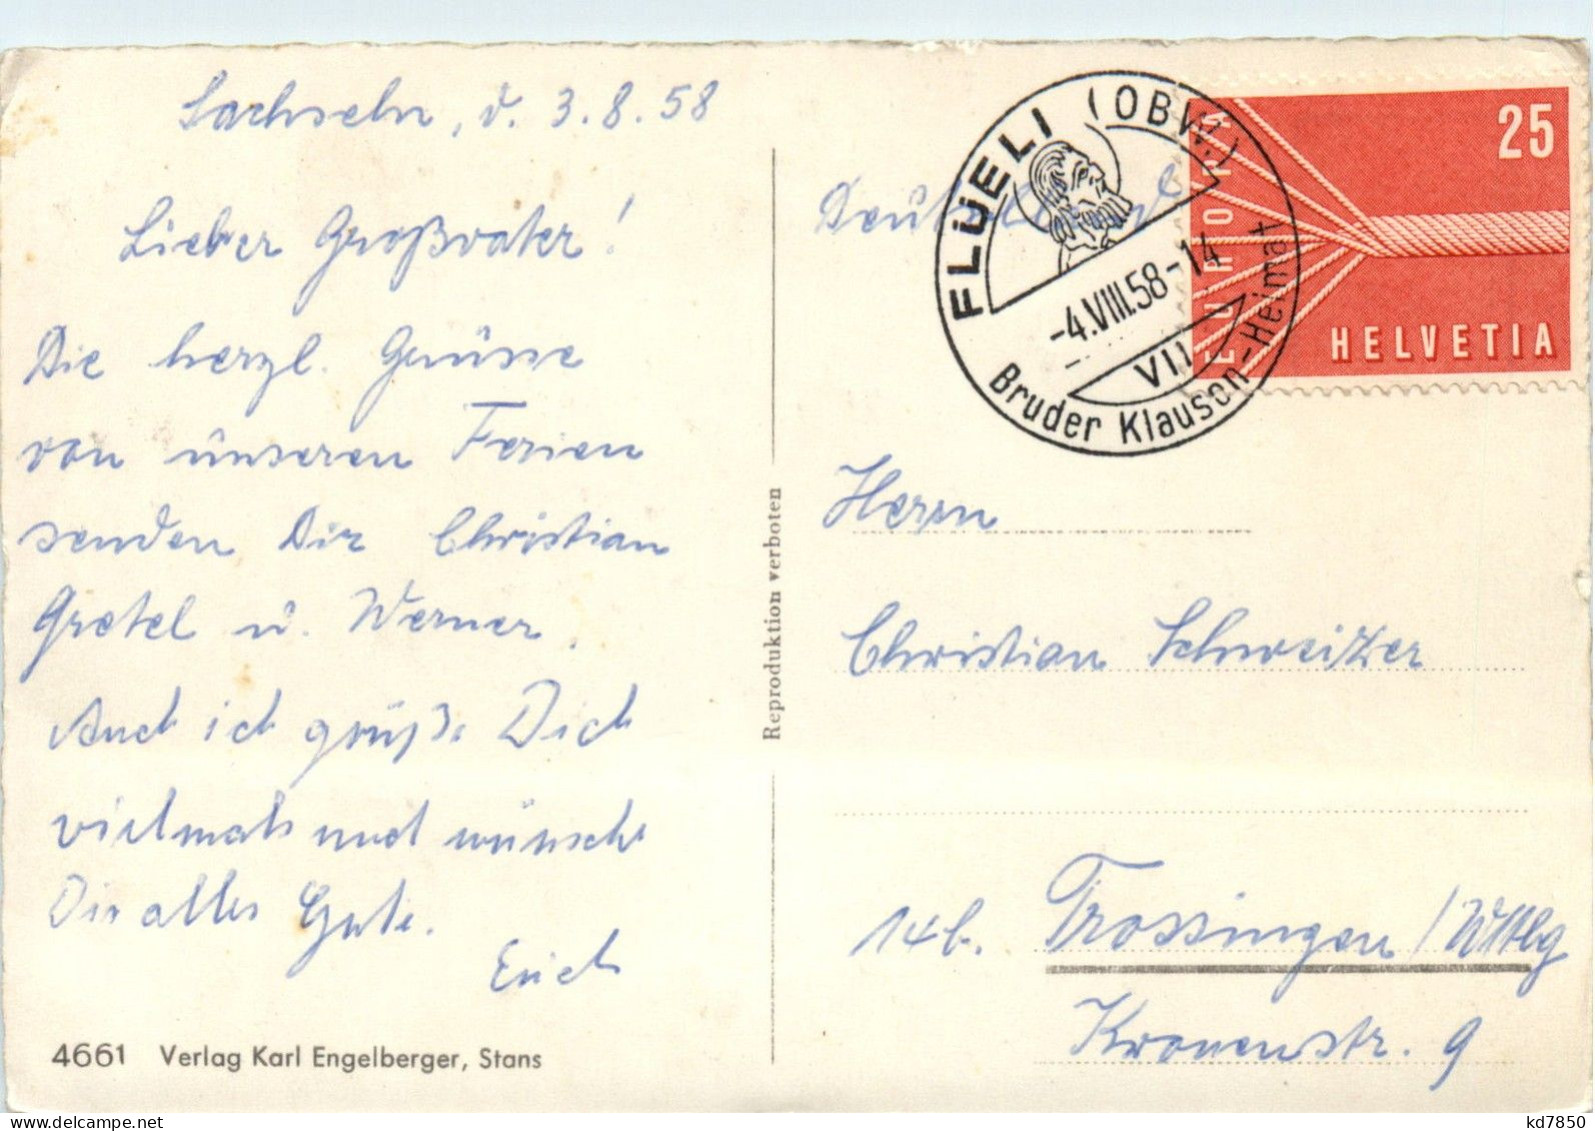 Sachseln, d. 3.8.58
Lieber Großvater!
Die herzl. Grüsse
von unseren Ferien
senden Dir Christian
Gretel u. Werner.
Auch ich grüße Dich
vielmals und wünsche
Dir alles Gute.
Erich
4661 Verlag Karl Engelberger, Stans
Reproduktion verboten
FLÜELI (OBW.)
-4.VIII.58-14
VII
Bruder Klausen-Heimat
EUROPA
25
HELVETIA
Deutschland
Herrn
Christian Schweizer
14b. Trossingen/Wttbg
Kronenstr. 9
kd7850